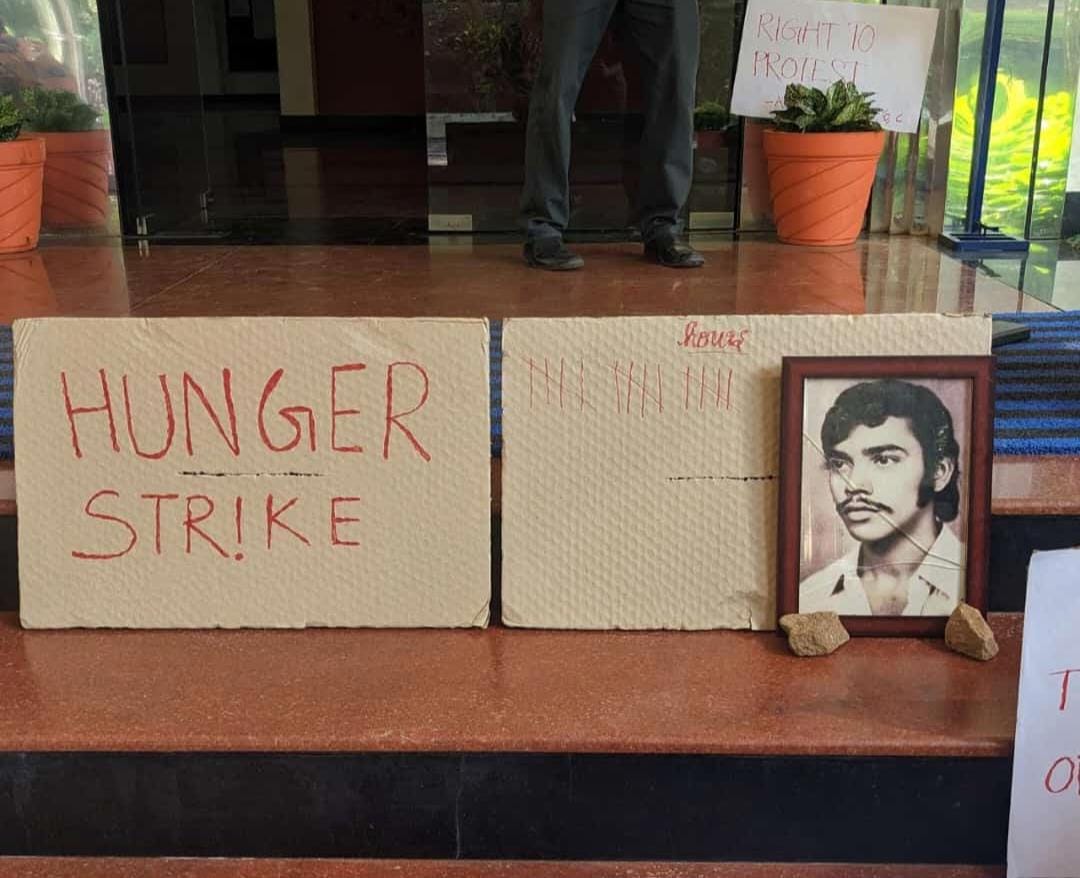 RIGHT TO
PROTEST
HUNGER
STR!KE
hours
T